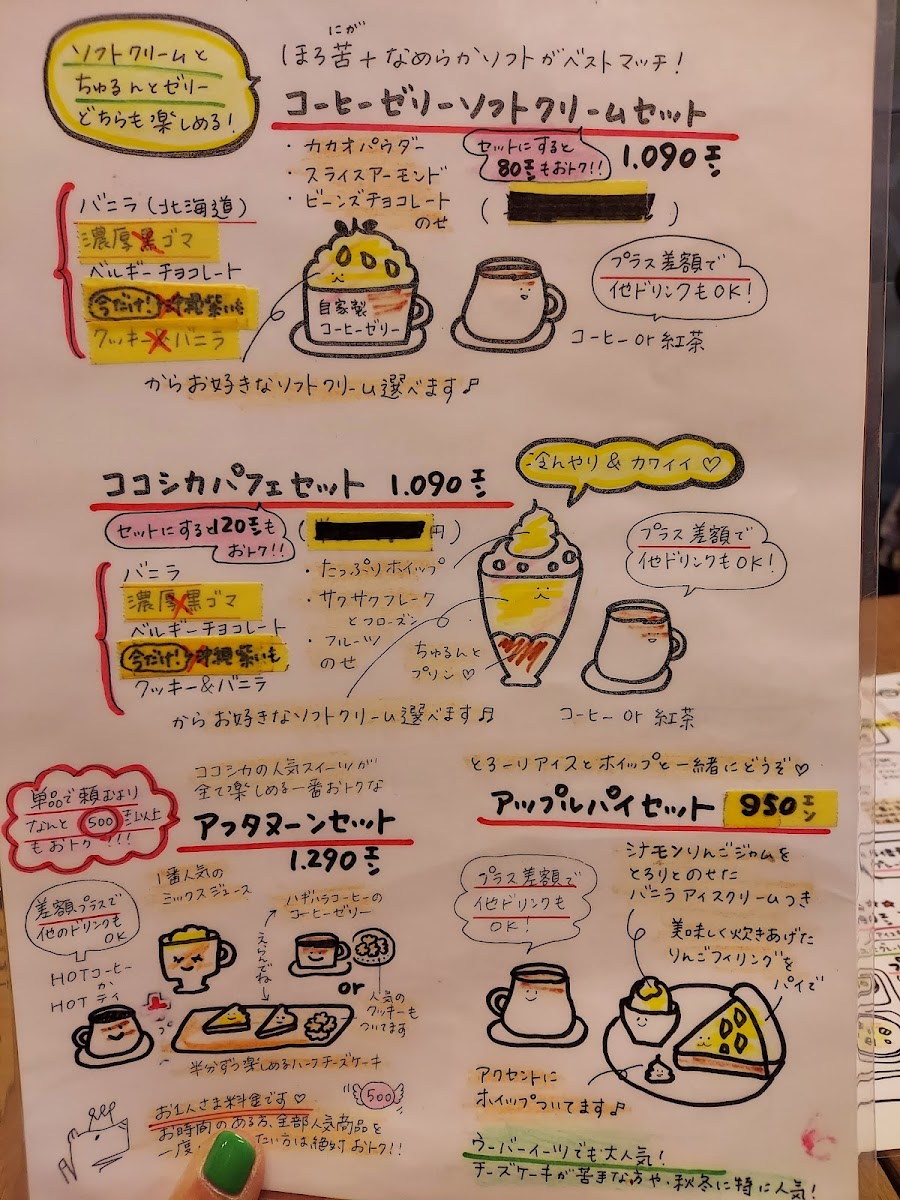 ソフトクリームと
ちゅるんとゼリー
どちらも楽しめる!
にが
ほろ苦+なめらかソフトがベストマッチ!
コーヒーゼリーソフトクリームセット
・カカオパウダー
・スライスアーモンド
・ビーンズチョコレート
のせ
セットにすると
80円もおトク!!
1.090円
( )
バニラ(北海道)
濃厚黒ゴマ
ベルギーチョコレート
今だけ!
クッキー&バニラ
自家製
コーヒーゼリー
プラス差額で
他ドリンクもOK!
コーヒーor紅茶
からお好きなソフトクリーム選べます♪
ココシカパフェセット 1.090円
冷んやり&カワイイ♡
セットにすると120円も
おトク!!
( 円)
バニラ
濃厚黒ゴマ
ベルギーチョコレート
今だけ!
クッキー&バニラ
・たっぷりホイップ
・サクサクフレーク
とフローズン
・フルーツ
のせ
ちゅるんと
プリン♡
プラス差額で
他ドリンクもOK!
からお好きなソフトクリーム選べます♫
コーヒーor紅茶
単品で頼むより
なんと500円以上
もおトク!!!
ココシカの人気スイーツが
全て楽しめる一番おトクな
アフタヌーンセット
1.290円
1番人気の
ミックスジュース
差額プラスで
他のドリンクも
OK
HOTコーヒー
か
HOTティ
ハギハラコーヒーの
コーヒーゼリー
えらんでね
or
人気の
クッキーも
ついてます
半分ずつ楽しめるハーフチーズケーキ
500
お1人さま料金です♡
お時間のある方、全部人気商品を
一度
たい方は絶対おトク!!
とろーりアイスとホイップと一緒にどうぞ♡
アップルパイセット 950円
プラス差額で
他ドリンクも
OK!
シナモンりんごジャムを
とろりとのせた
バニラアイスクリームつき
美味しく炊きあげた
りんごフィリングを
パイで
アクセントに
ホイップついてます♪
ウーバーイーツでも大人気!
チーズケーキが苦手な方や、秋冬に特に人気!